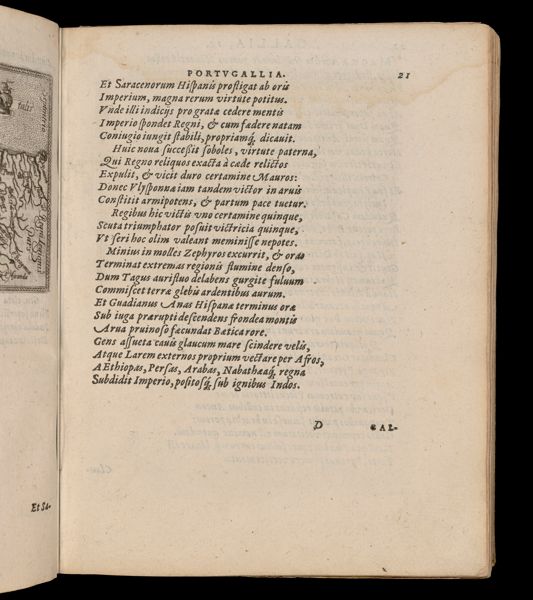 PORTVGALLIA.
21
Et Saracenorum Hiſpanis profligat ab oris
Imperium, magna rerum virtute potitus.
Vnde illi indicijs pro gratæ cedere mentis
Imperio ſpondet Regni, & cum fœdere natam
Coniugio iungit ſtabili, propriamq́; dicauit.
Huic noua ſucceſsit ſoboles, virtute paterna,
Qui Regno reliquos exacta à cæde relictos
Expulit, & vicit duro certamine Mauros:
Donec Vlyſponna iam tandem victor in aruis
Conſtitit armipotens, & partum pace tuetur.
Regibus hic victis vno certamine quinque,
Scuta triumphator poſuit victricia quinque,
Vt ſeri hoc olim valeant meminiſſe nepotes.
Minius in molles Zephyros excurrit, & oras
Terminat extremas regionis flumine denſo,
Dum Tagus aurifluo delabens gurgite fuluum
Commiſcet terræ glebis ardentibus aurum.
Et Guadianus Anas Hiſpanæ terminus oræ
Sub iuga prærupti deſcendens frondea montis
Arua pruinoſo fæcundat Bætica rore.
Gens aſſueta cauis glaucum mare ſcindere velis,
Atque Larem externos proprium vectare per Afros,
AEthiopas, Perſas, Arabas, Nabathæaq́; regna
Subdidit Imperio, poſitoſq́; ſub ignibus Indos.
D
GAL-
Et Sa-